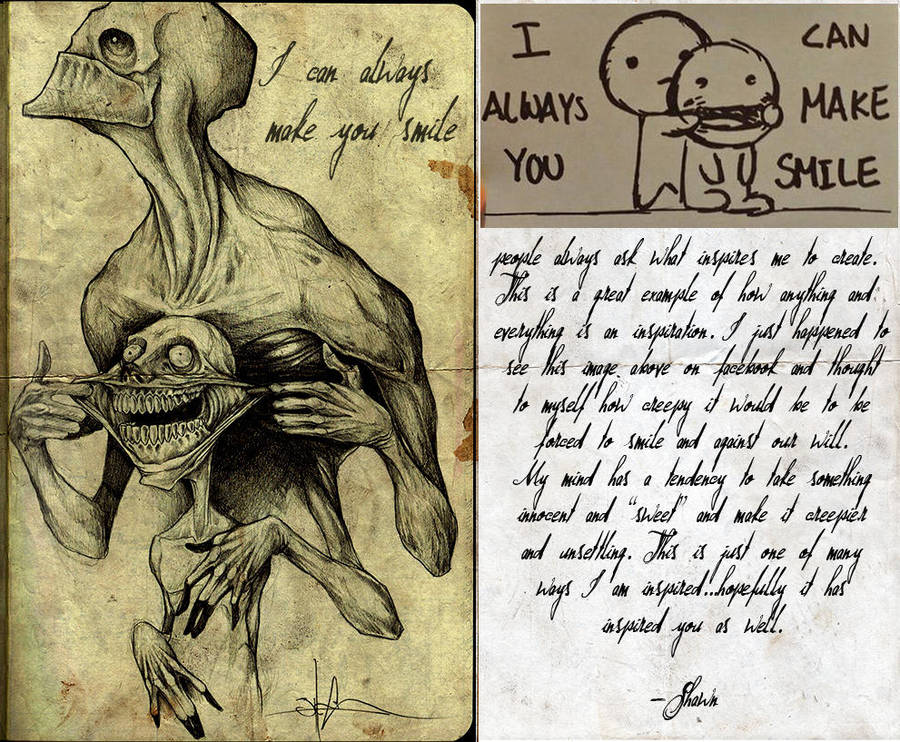 I can always
make you smile
I CAN
ALWAYS MAKE
YOU SMILE
people always ask what inspires me to create.
This is a great example of how anything and
everything is an inspiration. I just happened to
see this image above on facebook and thought
to myself how creepy it would be to be
forced to smile and against our will.
My mind has a tendency to take something
innocent and "sweet" and make it creepier
and unsettling. This is just one of many
ways I am inspired...hopefully it has
inspired you as well.
-Shawn